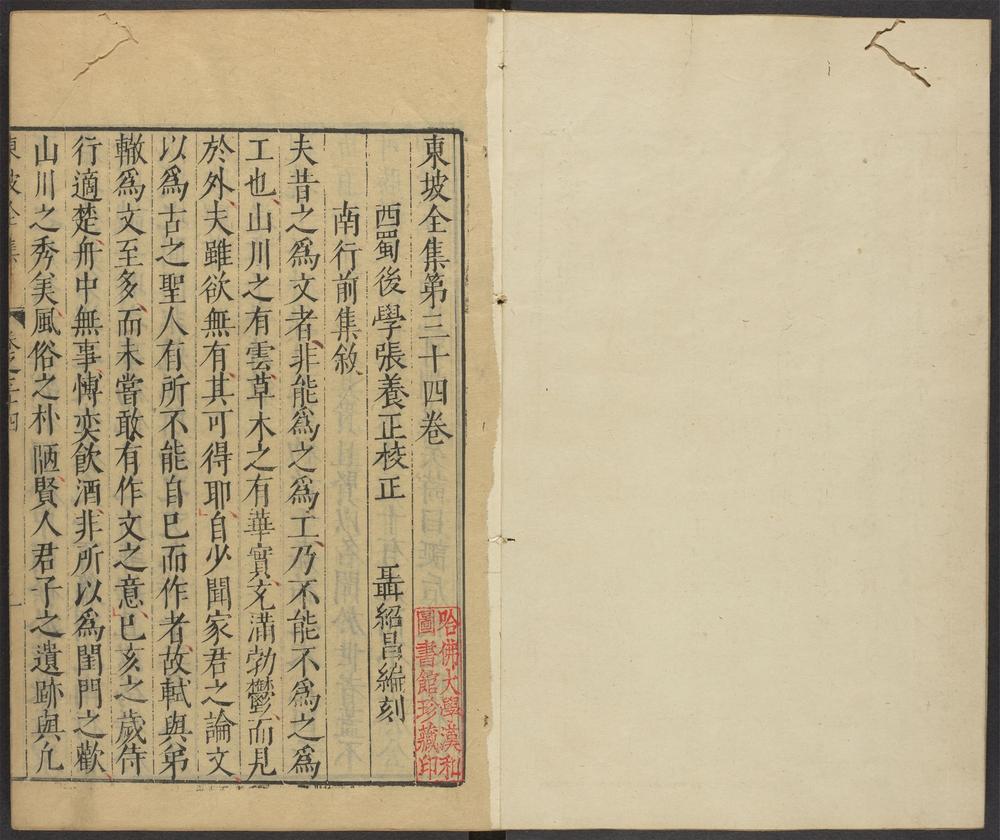 東坡全集第三十四卷
西蜀後學張養正校正　聶紹昌編刻
南行前集敘
夫昔之爲文者非能爲之爲工乃不能不爲之爲
工也山川之有雲草木之有華實充滿勃鬱而見
於外夫雖欲無有其可得耶自少聞家君之論文
以爲古之聖人有所不能自已而作者故軾與弟
轍爲文至多而未嘗敢有作文之意已亥之歲侍
行適楚舟中無事博奕飲酒非所以爲閨門之歡
山川之秀美風俗之朴陋賢人君子之遺跡與凡
東坡全集
卷之三十四
一
哈佛大學漢和
圖書館珍藏印